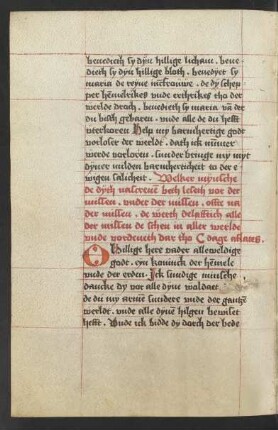 benedieth sy dyn hillige licham. bene
dieth sy dyn hillige bloth. benedyet sy
maria de reyne iuncfrauwe. de dy schep
per hemelrikes vnde erthrikes tho der
werlde droch. benedieth sy maria van der
du bist gebaren. vnde alle de du hefft
vterkoren Help my barmhertige godt
vorloser der werlde. dath ick nummer
werde vorloren. sunder brynge my myt
dyner milden barmherticheit to der e
wigen salicheit. Welker mynsche
de dyth naleseuet beth lesith vor der
missen. vnder der missen. offte na
der missen. de werth delafftich alle
der missen de schen in aller werlde
vnde vordeneth dar tho C dage afflates.
O Hillige here vader allweldige
godt. eyn konnick der hemele
vnde der erden. Ick sundige minsche
dancke dy vor alle dyne woldaet
de du my armen sundere vnde der gantzen
werldt. vnde alle dynen hilgen bewiset
hefft. Vnde ick bidde dy dorch der bede